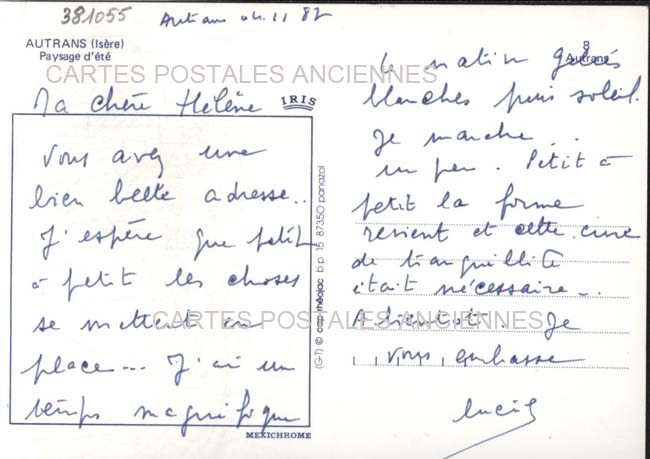 381055
Autrans 04.11 87
AUTRANS (Isère)
Paysage d'été
8
Autrans
CARTES POSTALES ANCIENNES
IRIS
Ma chère Hélène
vous avez une
bien belle adresse..
J'espère que petit
à petit les choses
se mettent en
place... J'ai un
temps magnifique
MEXICHROME
(G-T) © cap-théojac b.p. 15 87350 panazol
le matin gelées
blanches puis soleil.
Je marche ..
un peu. Petit à
petit la forme
revient et cette cure
de tranquillité
était nécessaire...
A bientôt. Je
vous embrasse
CARTES POSTALES ANCIENNES